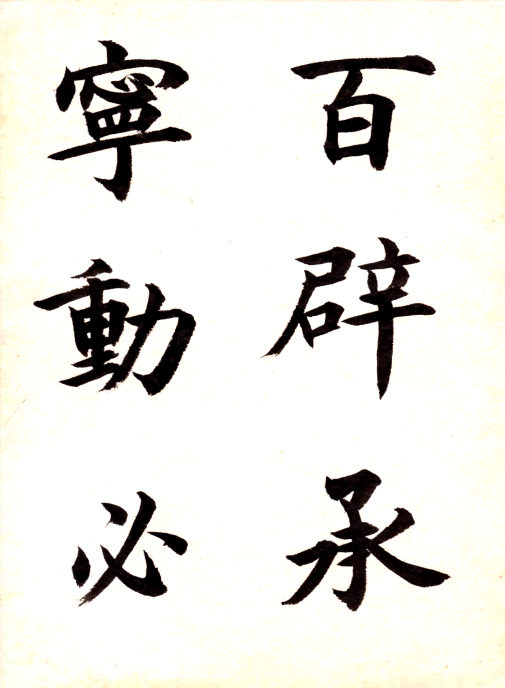 百辟承
寧動必